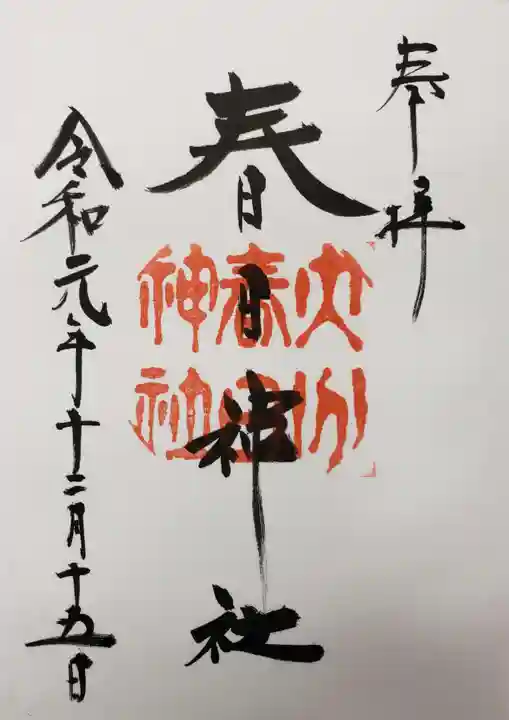 奉拝
春日神社
大分
春日
神社
令和元年十二月十五日